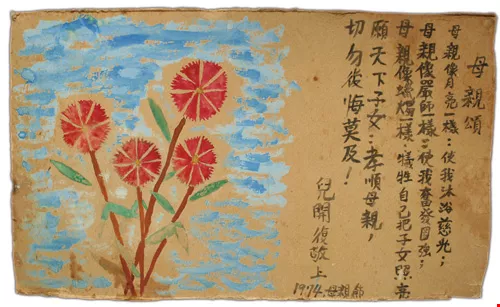 母親頌
母親像月亮一樣：使我沐浴慈光；
母親像嚴師一樣：使我奮發自強；
母親像蠟燭一樣：犧牲自己把子女照亮
願天下子女：孝順母親，
切勿後悔莫及！
兒開復敬上
1974.母親節